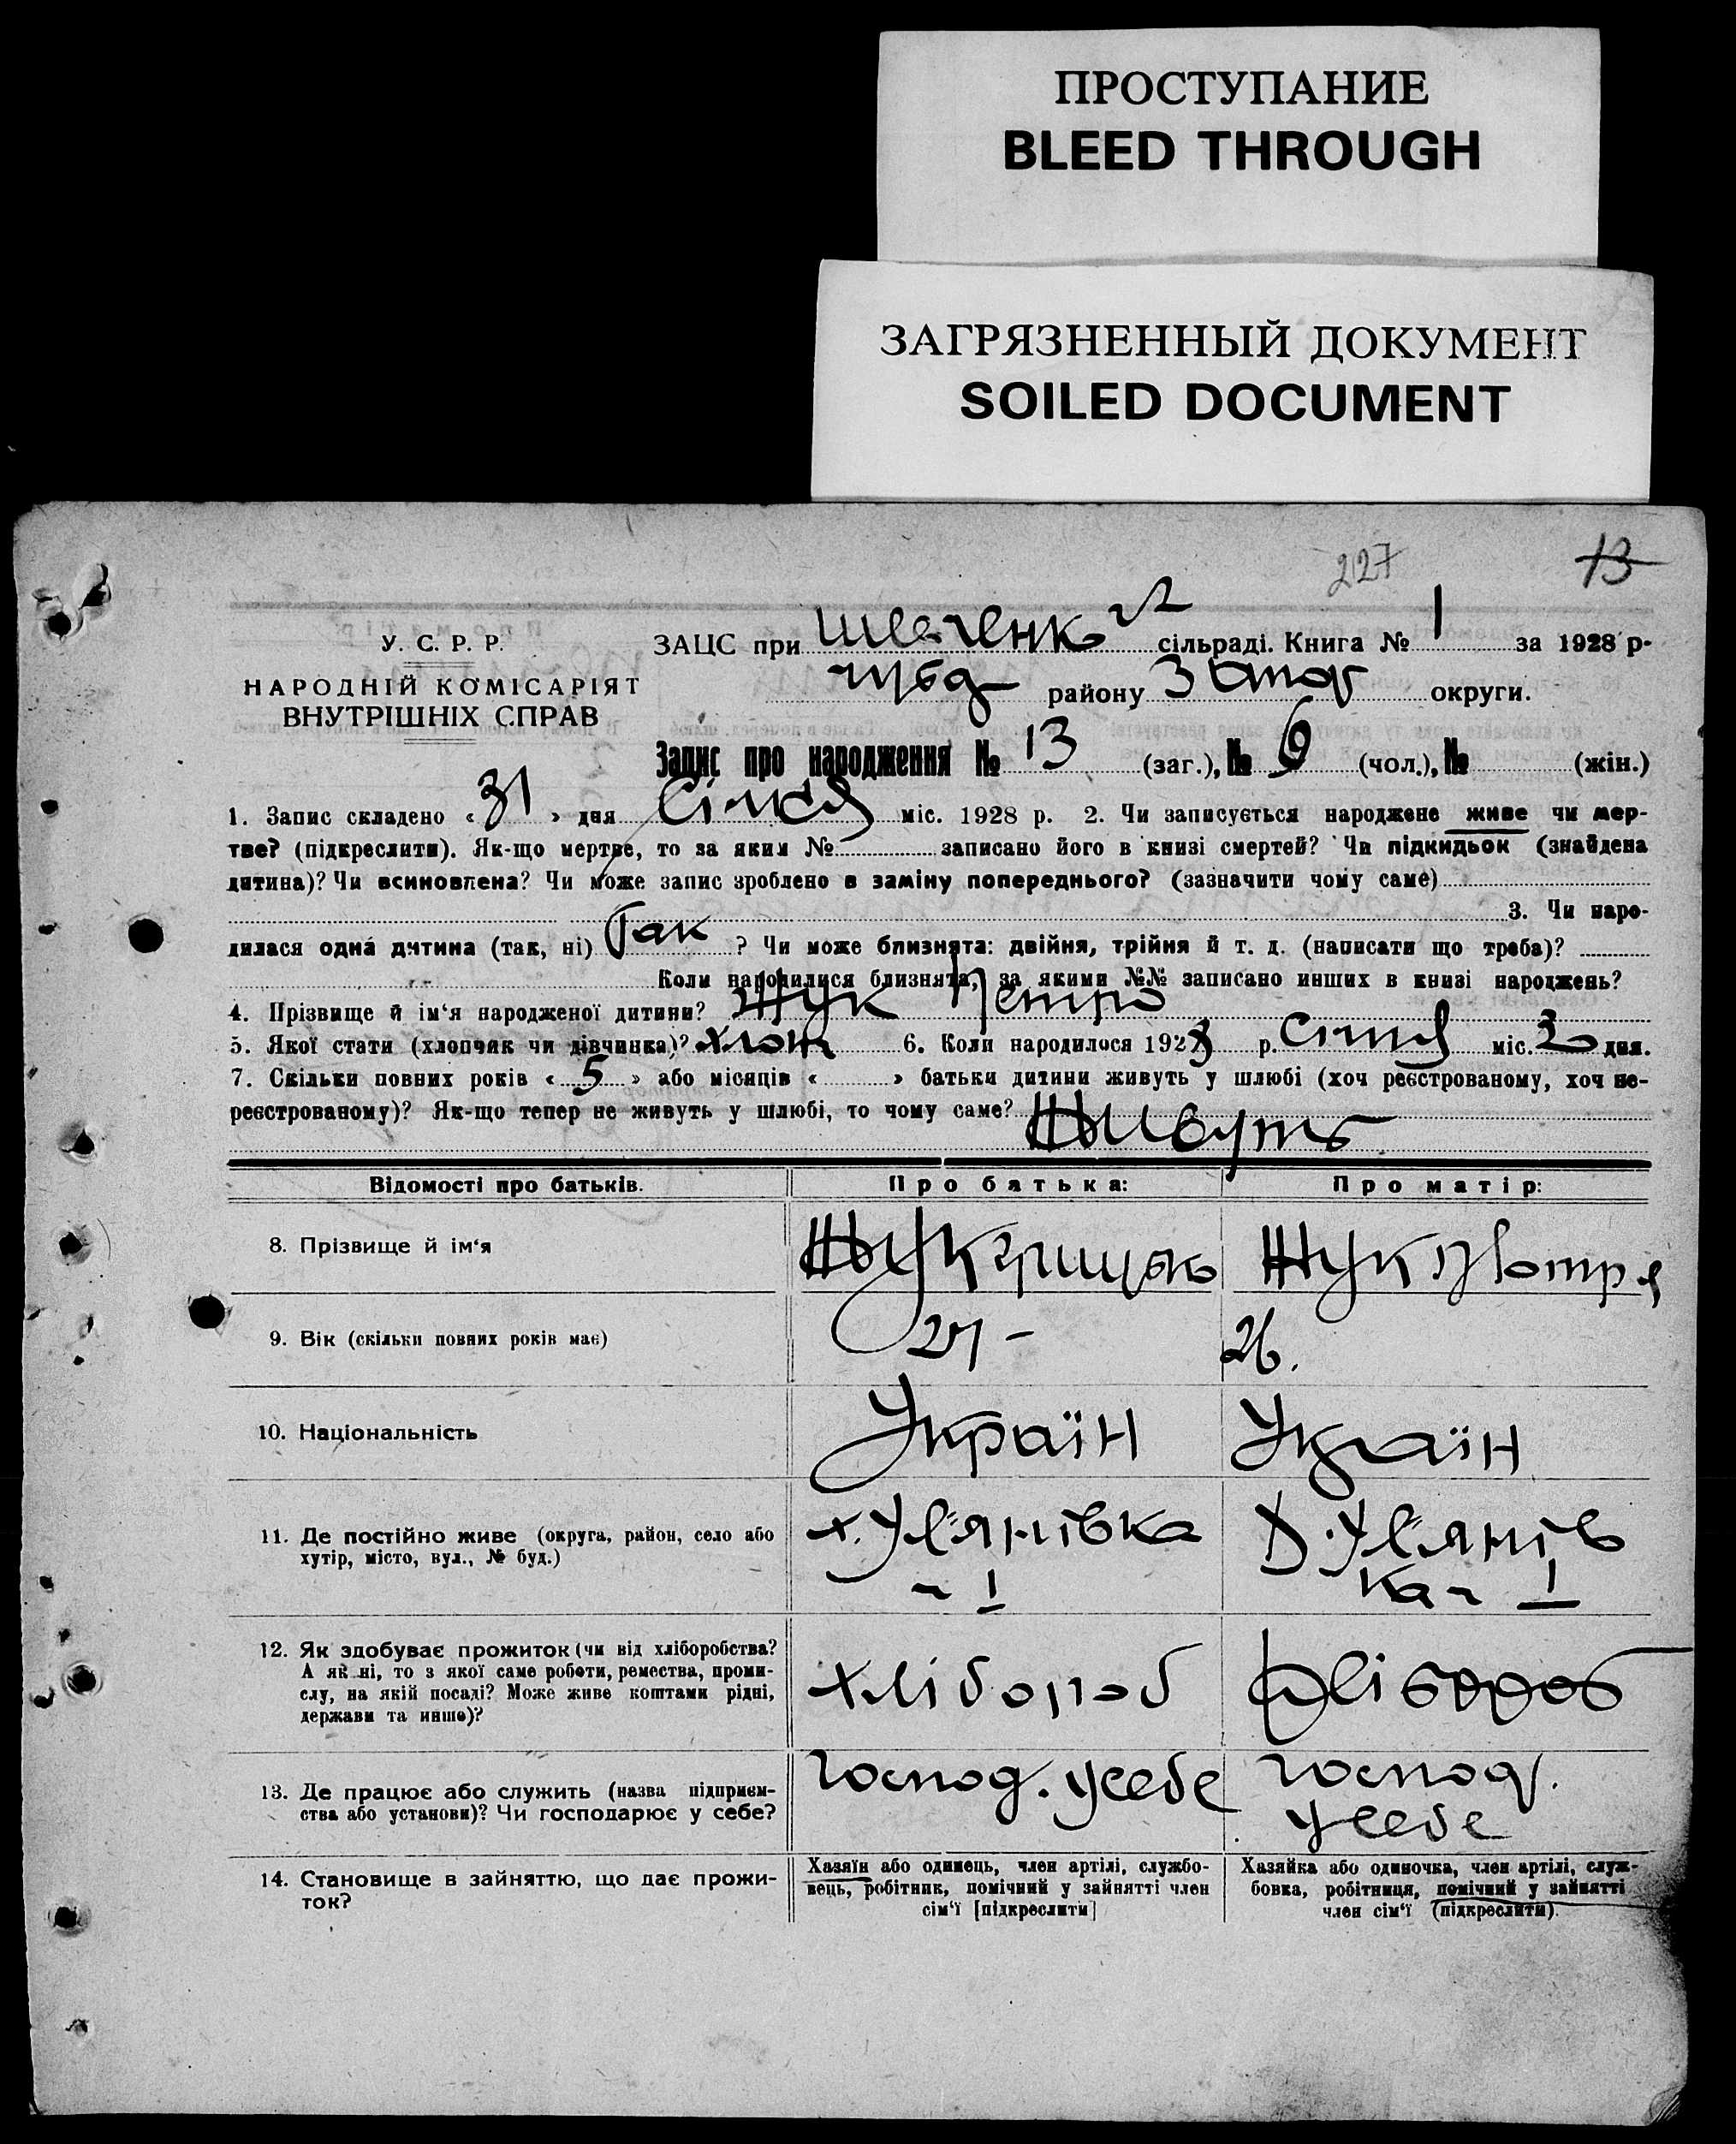 ПРОСТУПАНИЕ
BLEED THROUGH
ЗАГРЯЗНЕННЫЙ ДОКУМЕНТ
SOILED DOCUMENT
227 13
У. С. Р. Р.
НАРОДНІЙ КОМІСАРІЯТ
ВНУТРІШНІХ СПРАВ
ЗАЦС при сільраді. Книга № 1 за 1928 р.
району округи.
Запис про народження № 13 (заг.), № 6 (чол.), № (жін.)
1. Запис складено « 31 » дня Січня міс. 1928 р. 2. Чи записується народжене живе чи мер-
тве? (підкреслити). Як-що мертве, то за яким № записано його в книзі смертей? Чи підкидьок (знайдена
дитина)? Чи всиновлена? Чи може запис зроблено в заміну попереднього? (зазначити чому саме)
3. Чи наро-
дилася одна дитина (так, ні) Так ? Чи може близнята: двійня, трійня й т. д. (написати що треба)?
Коли народилися близнята, за якими №№ записано инших в книзі народжень?
4. Прізвище й ім‘я народженої дитини? Жук Петро
5. Якої стати (хлопчяк чи дівчинка)? хлоп 6. Коли народилося 1928 р. Січня міс. дня.
7. Скільки повних років « 5 » або місяців « » батьки дитини живуть у шлюбі (хоч реєстрованому, хоч не-
реєстрованому)? Як-що тепер не живуть у шлюбі, то чому саме? Живуть
Відомості про батьків. Про батька: Про матір:
8. Прізвище й ім‘я Жук Жук
9. Вік (скільки повних років має) 26.
10. Національність Україн Україн
11. Де постійно живе (округа, район, село або х. Ул'янівка Х. Ул'янів
хутір, місто, вул., № буд.) I ка I
12. Як здобуває прожиток (чи від хліборобства? хлібороб хлібороб
А як ні, то з якої саме роботи, ремества, проми-
слу, на якій посаді? Може живе коштами рідні,
держави та инше)?
13. Де працює або служить (назва підприєм- господ. усебе господ.
ства або установи)? Чи господарює у себе? усебе
14. Становище в зайняттю, що дає прожи-
ток?
Хазяїн або одинець, член артілі, службо-
вець, робітник, помічний у зайнятті член
сім‘ї [підкреслити]
Хазяйка або одиночка, член артілі, служ-
бовка, робітниця, помічний у зайнятті
член сім‘ї (підкреслити).